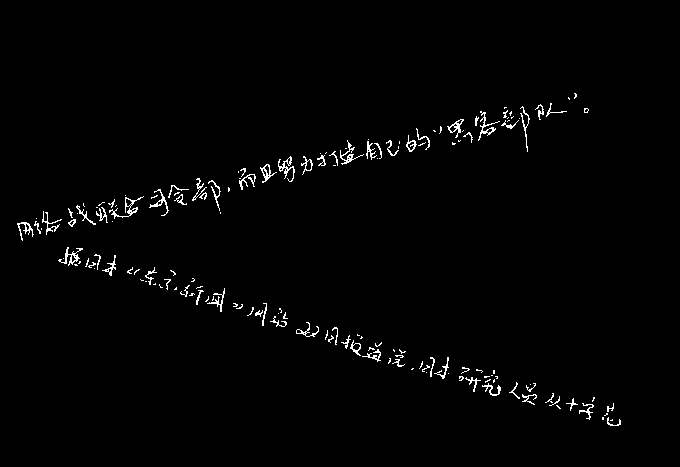 网络战联合司令部，而且努力打造自己的“黑客部队”。
据日本《东京新闻》网站22日报道说，日本研究人员从十字花